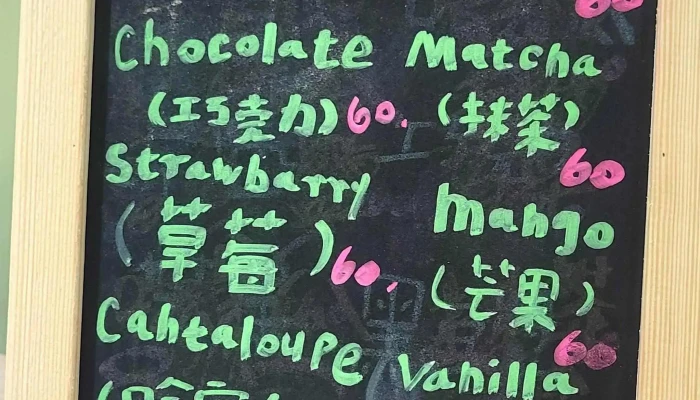 60
Chocolate Matcha
(巧克力) 60. (抹茶)
Strawbarry 60
Mango
(草莓) 60. (芒果)
Cantaloupe 60
Vanilla